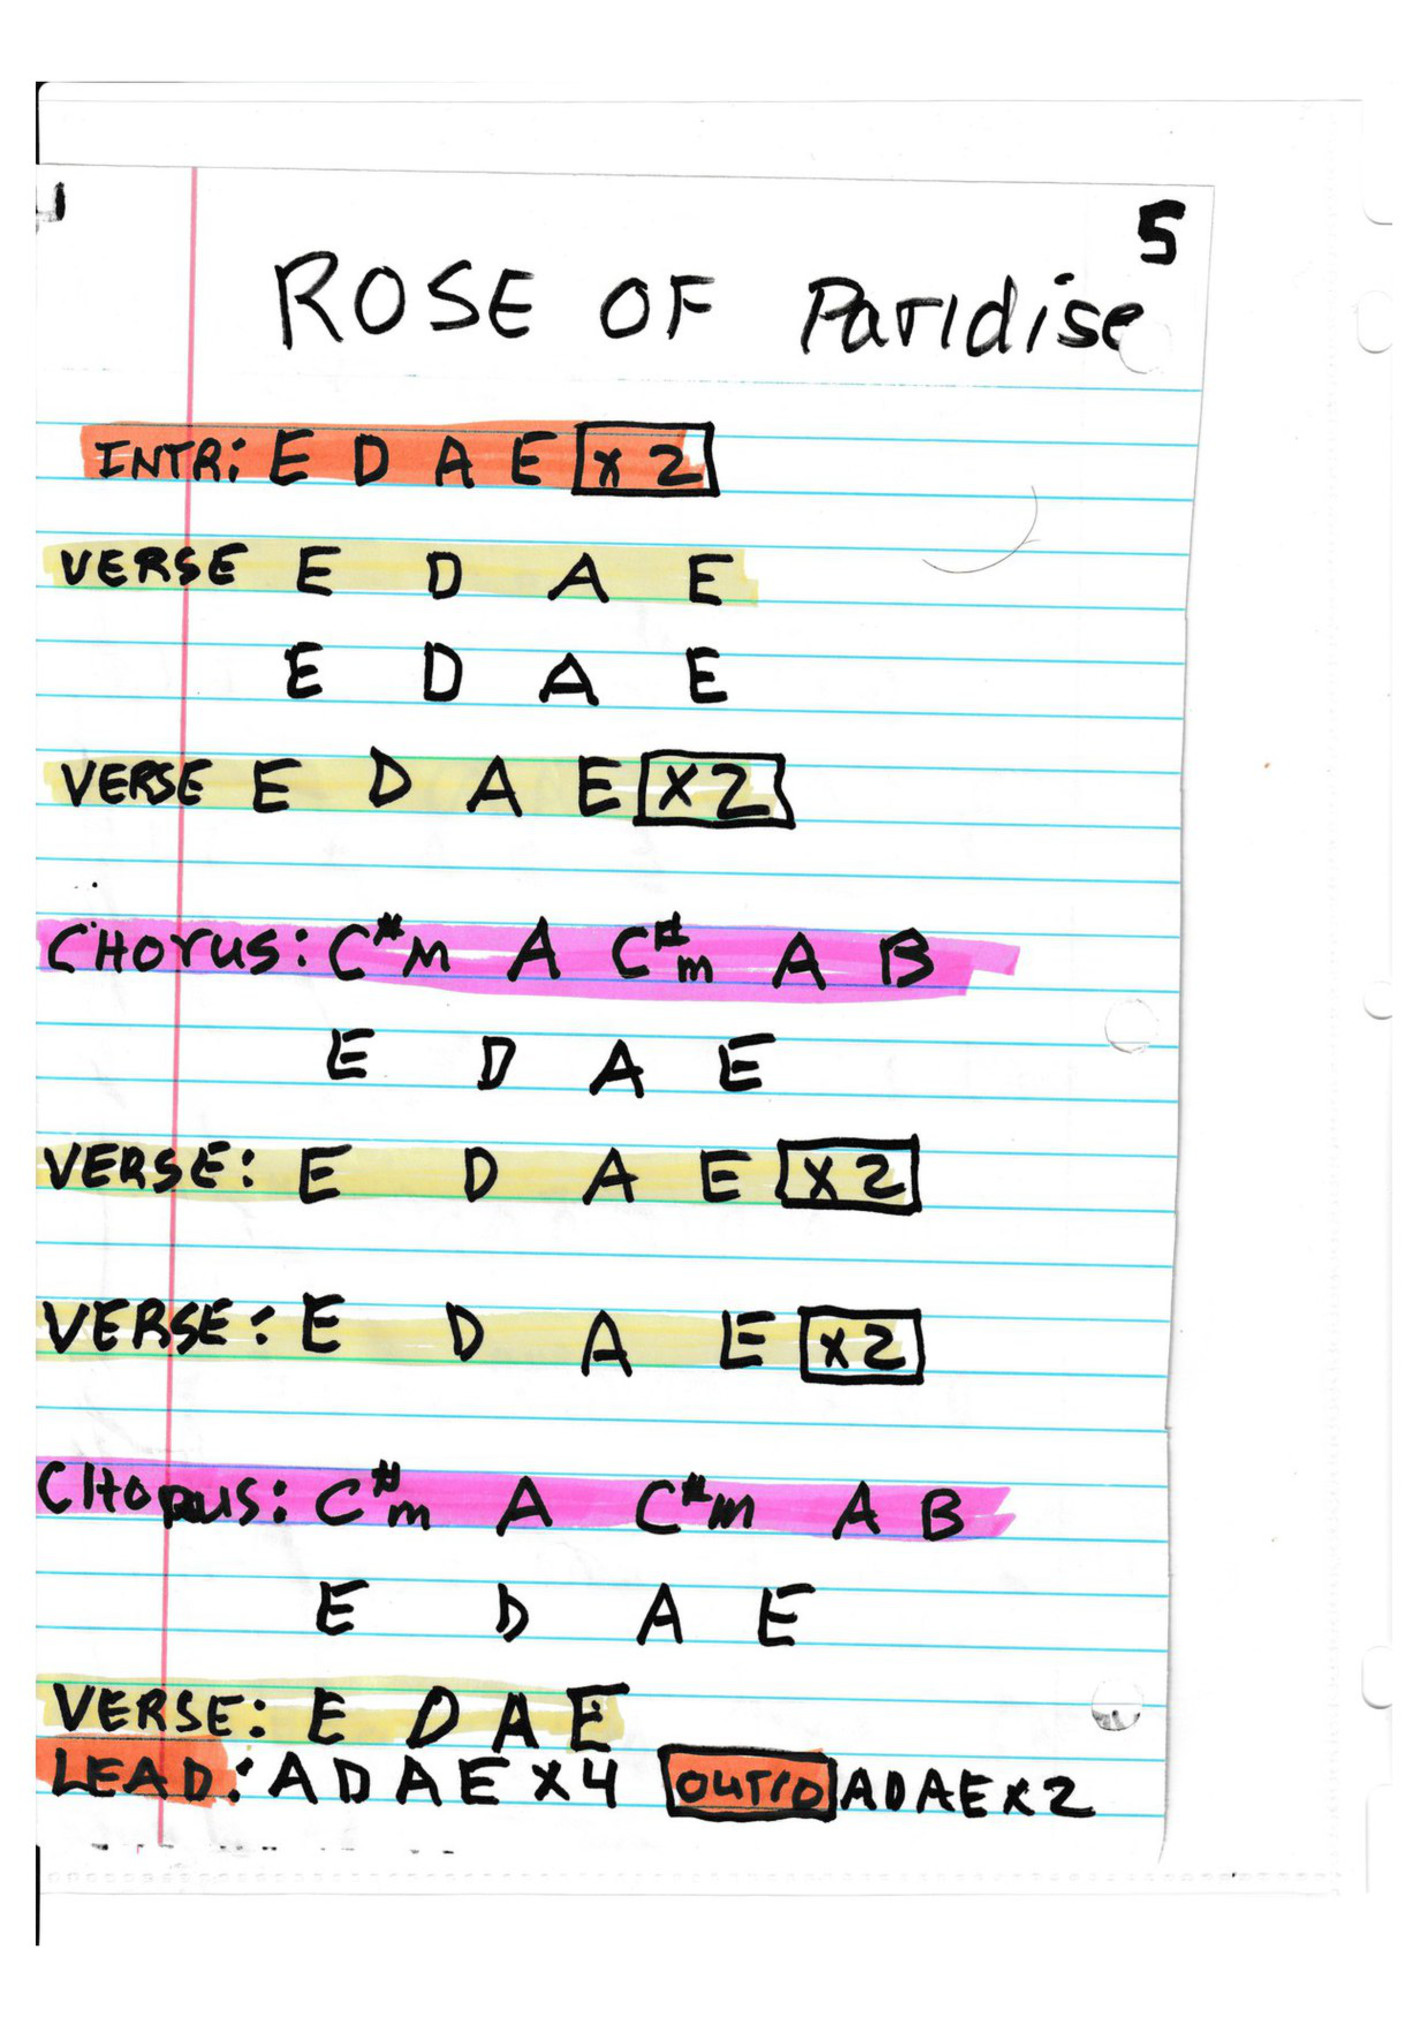 5
ROSE OF Paridise
INTR: E D A E x 2
VERSE E D A E
E D A E
VERSE E D A E x2
CHorus: C#m A C#m A B
E D A E
VERSE: E D A E x2
VERSE: E D A E x2
CHORUS: C#m A C#m A B
E D A E
VERSE: E D A E
LEAD: A D A E x4 OUTRO A D A E x 2